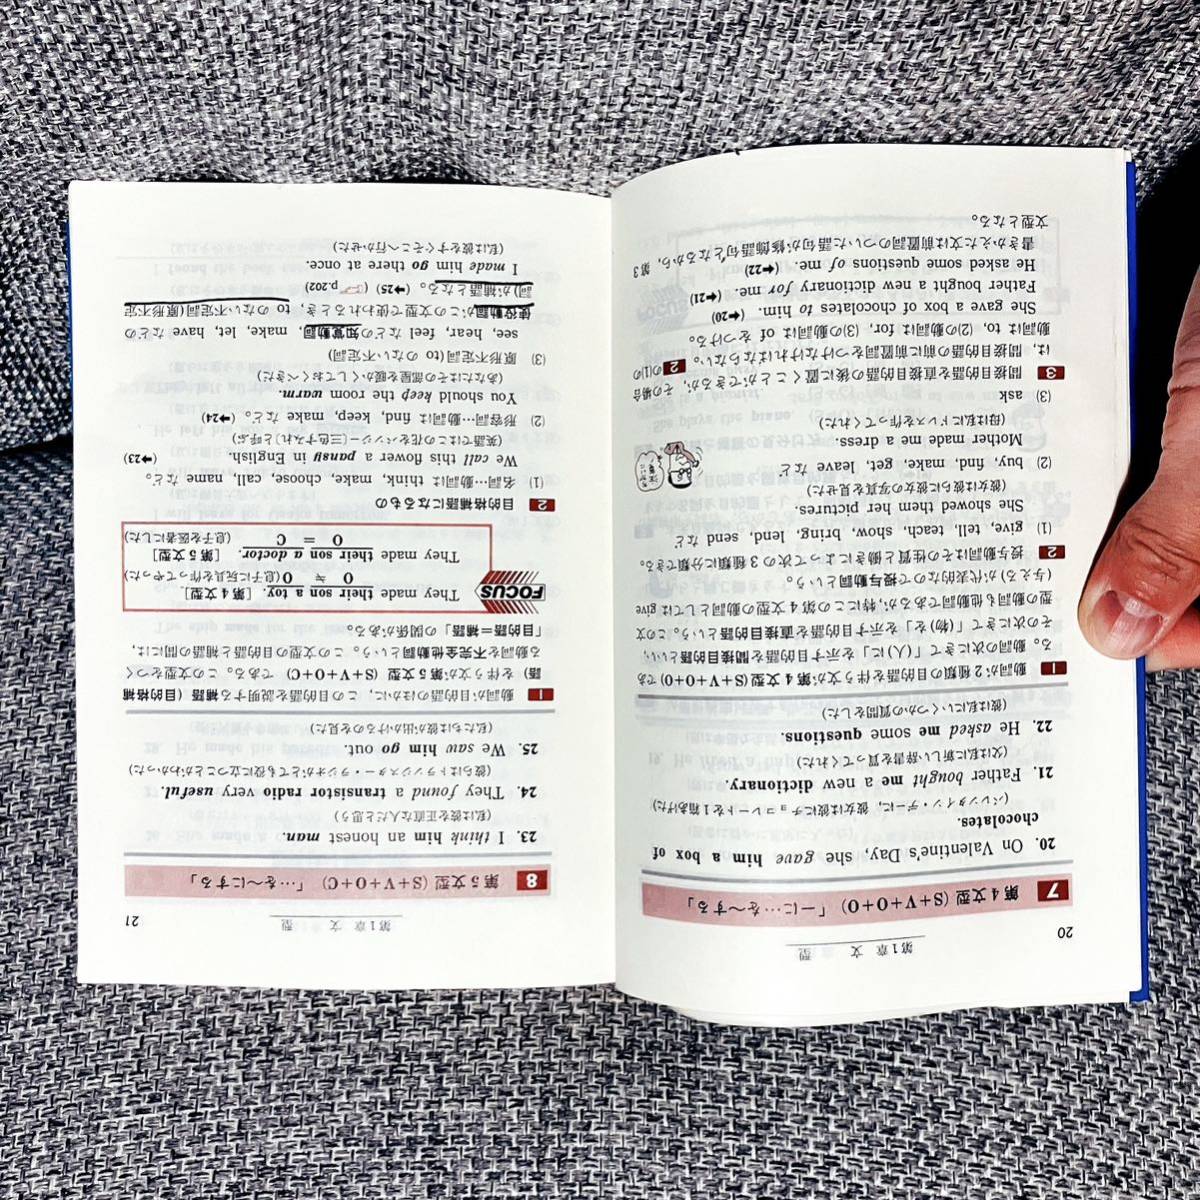 20
第1章 文 型
7 第4文型 (S+V+O+O) 「―に…を～する」
20. On Valentine's Day, she gave him a box of
chocolates.
(バレンタイン・デーに, 彼女は彼にチョコレートを1箱あげた)
21. Father bought me a new dictionary.
(父は私に新しい辞書を買ってくれた)
22. He asked me some questions.
(彼は私にいくつかの質問をした)
1 動詞が2種類の目的語を伴う文が第4文型 (S+V+O+O) であ
る。動詞の次にきて「(人)に」を示す目的語を間接目的語といい,
その次にきて「(物)を」を示す目的語を直接目的語という。この文
型の動詞も他動詞であるが, 特にこの第4文型の動詞としては give
(与える) が代表的なので授与動詞という。
2 授与動詞はその性質と働きによって次の3種類に分類できる。
(1) give, tell, teach, show, bring, lend, send など
She showed them her pictures.
(彼女は彼らに彼女の写真を見せた)
(2) buy, find, make, get, leave など
Mother made me a dress.
(母は私にドレスを作ってくれた)
(3) ask
3 間接目的語を直接目的語の後に置くことができるが, その場合
は, 間接目的語の前に前置詞をつけなければならない。 2の(1)の
動詞は to, (2)の動詞は for, (3)の動詞は of をつける。
She gave a box of chocolates to him. (➡20)
Father bought a new dictionary for me. (➡21)
He asked some questions of me. (➡22)
書きかえた文は前置詞のついた語句が修飾語句となるから, 第3
文型となる。
第1章 文 型
21
8 第5文型 (S+V+O+C) 「…を～にする」
23. I think him an honest man.
(私は彼を正直な人だと思う)
24. They found a transistor radio very useful.
(彼らはトランジスター・ラジオがとても役に立つことがわかった)
25. We saw him go out.
(私たちは彼が出かけるのを見た)
1 動詞が目的語のほかに, この目的語を説明する補語 (目的格補
語) を伴う文が第5文型 (S+V+O+C) である。この文型をつく
る動詞を不完全他動詞という。この文型の目的語と補語の間には,
「目的語=補語」の関係がある。
FOCUS
They made their son a toy. [第4文型]
O ≠ O (息子に玩具を作ってやった)
They made their son a doctor. [第5文型]
O = C (息子を医者にした)
2 目的格補語になるもの
(1) 名詞…動詞は think, make, choose, call, name など。
We call this flower a pansy in English. (➡23)
(英語ではこの花をパンジー[三色すみれ]と呼ぶ)
(2) 形容詞…動詞は find, keep, make など。 (➡24)
You should keep the room warm.
(あなたはその部屋を暖かくしておくべきだ)
(3) 原形不定詞 (to のない不定詞)
see, hear, feel などの知覚動詞, make, let, have などの
使役動詞がこの文型で使われるとき, to のない不定詞(原形不定
詞) が補語となる。 (➡25) ( p.202)
I made him go there at once.
(私は彼をすぐそこへ行かせた)